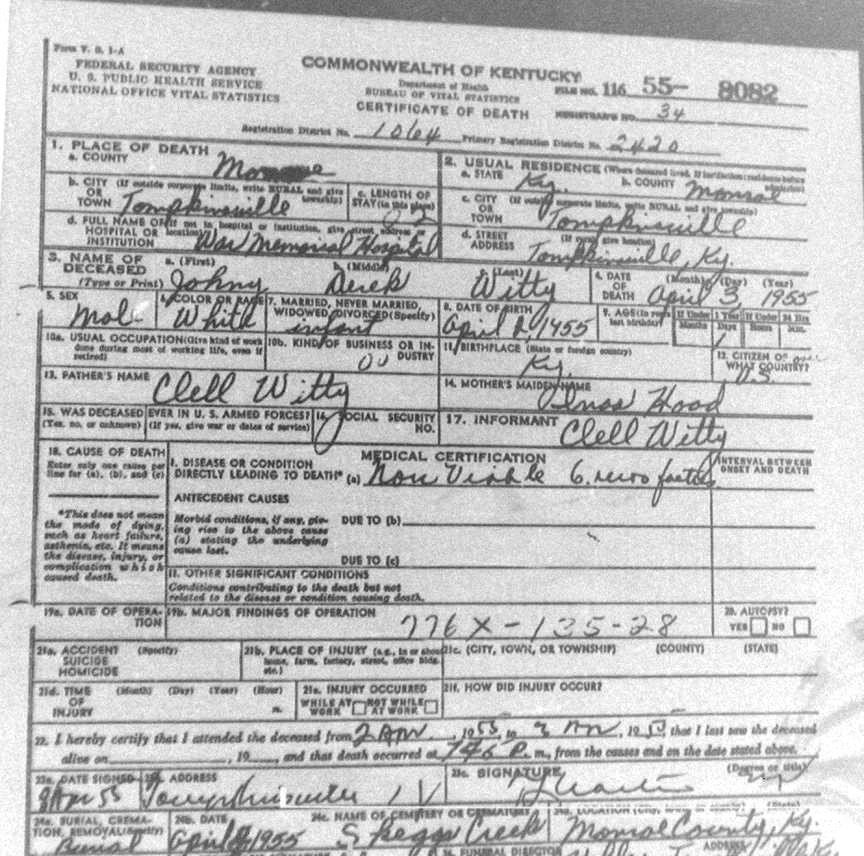 Form V. S. 1-A
FEDERAL SECURITY AGENCY
U. S. PUBLIC HEALTH SERVICE
NATIONAL OFFICE VITAL STATISTICS
COMMONWEALTH OF KENTUCKY
Department of Health
BUREAU OF VITAL STATISTICS
CERTIFICATE OF DEATH
FILE NO. 116 55- 8082
REGISTRAR'S NO. 34
Registration District No. 1064 Primary Registration District No. 2420
1. PLACE OF DEATH
a. COUNTY Monroe
2. USUAL RESIDENCE (Where deceased lived. If institution: residence before admission)
a. STATE Ky. b. COUNTY Monroe
b. CITY (If outside corporate limits, write RURAL and give township)
OR
TOWN Tompkinsville
c. LENGTH OF
STAY (in this place)
c. CITY (If outside corporate limits, write RURAL and give township)
OR
TOWN Tompkinsville
d. FULL NAME OF (If not in hospital or institution, give street address or location)
HOSPITAL OR
INSTITUTION War Memorial Hospital
d. STREET (If rural, give location)
ADDRESS Tompkinsville, Ky.
3. NAME OF DECEASED
(Type or Print)
a. (First) Johny
b. (Middle) Derek
c. (Last) Witty
4. DATE OF DEATH (Month) (Day) (Year)
April 3, 1955
5. SEX
Mal
6. COLOR OR RACE
White
7. MARRIED, NEVER MARRIED, WIDOWED, DIVORCED (Specify)
infant
8. DATE OF BIRTH
April 2, 1955
9. AGE (In years last birthday)
If Under 1 Year
Months Days
1
If Under 24 Hrs
Hours Min.
10a. USUAL OCCUPATION (Give kind of work done during most of working life, even if retired)
10b. KIND OF BUSINESS OR INDUSTRY
11. BIRTHPLACE (State or foreign country)
Ky.
12. CITIZEN OF WHAT COUNTRY?
U.S.
13. FATHER'S NAME
Clell Witty
14. MOTHER'S MAIDEN NAME
Hood
15. WAS DECEASED EVER IN U. S. ARMED FORCES?
(Yes, no, or unknown) (If yes, give war or dates of service)
16. SOCIAL SECURITY NO.
17. INFORMANT
Clell Witty
18. CAUSE OF DEATH
Enter only one cause per line for (a), (b), and (c)
MEDICAL CERTIFICATION
INTERVAL BETWEEN ONSET AND DEATH
I. DISEASE OR CONDITION
DIRECTLY LEADING TO DEATH* (a) Non Viable 6
*This does not mean the mode of dying, such as heart failure, asthenia, etc. It means the disease, injury, or complication which caused death.
ANTECEDENT CAUSES
Morbid conditions, if any, giving rise to the above cause (a) stating the underlying cause last.
DUE TO (b)
DUE TO (c)
II. OTHER SIGNIFICANT CONDITIONS
Conditions contributing to the death but not related to the disease or condition causing death.
19a. DATE OF OPERATION
19b. MAJOR FINDINGS OF OPERATION
776X-135-28
20. AUTOPSY?
YES NO
21a. ACCIDENT (Specify)
SUICIDE
HOMICIDE
21b. PLACE OF INJURY (e.g., in or about home, farm, factory, street, office bldg. etc.)
21c. (CITY, TOWN, OR TOWNSHIP) (COUNTY) (STATE)
21d. TIME OF INJURY (Month) (Day) (Year) (Hour)
m.
21e. INJURY OCCURRED
WHILE AT WORK NOT WHILE AT WORK
21f. HOW DID INJURY OCCUR?
22. I hereby certify that I attended the deceased from 2 Apr, 1955, to 3 Apr, 1955 that I last saw the deceased
alive on , 19 , and that death occurred at 746 P. m., from the causes and on the date stated above.
23a. DATE SIGNED
23b. ADDRESS
23c. SIGNATURE (Degree or title)
24a. BURIAL, CREMATION, REMOVAL (Specify)
Burial
24b. DATE
April 1955
24c. NAME OF CEMETERY OR CREMATORY
Skeggs Creek
24d. LOCATION
Monroe County, Ky.
FUNERAL DIRECTOR
ADDRESS